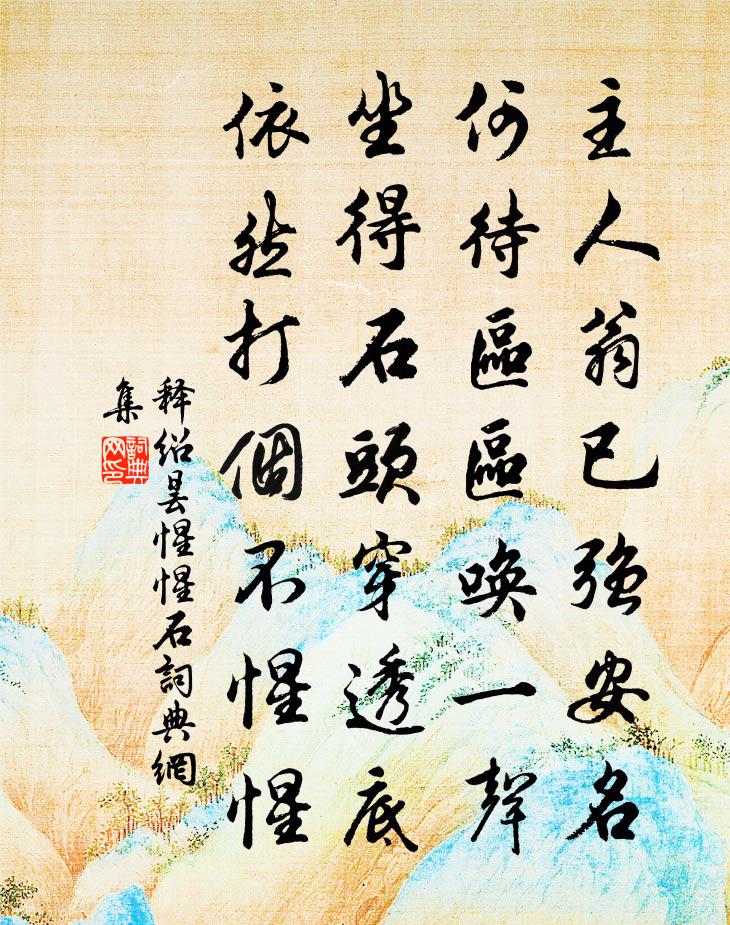 主人翁已強安名
何待區區喚一聲
坐得石頭穿透底
依然打個不惺惺
释绍昙惺惺石詞典網
集
詞典
网印